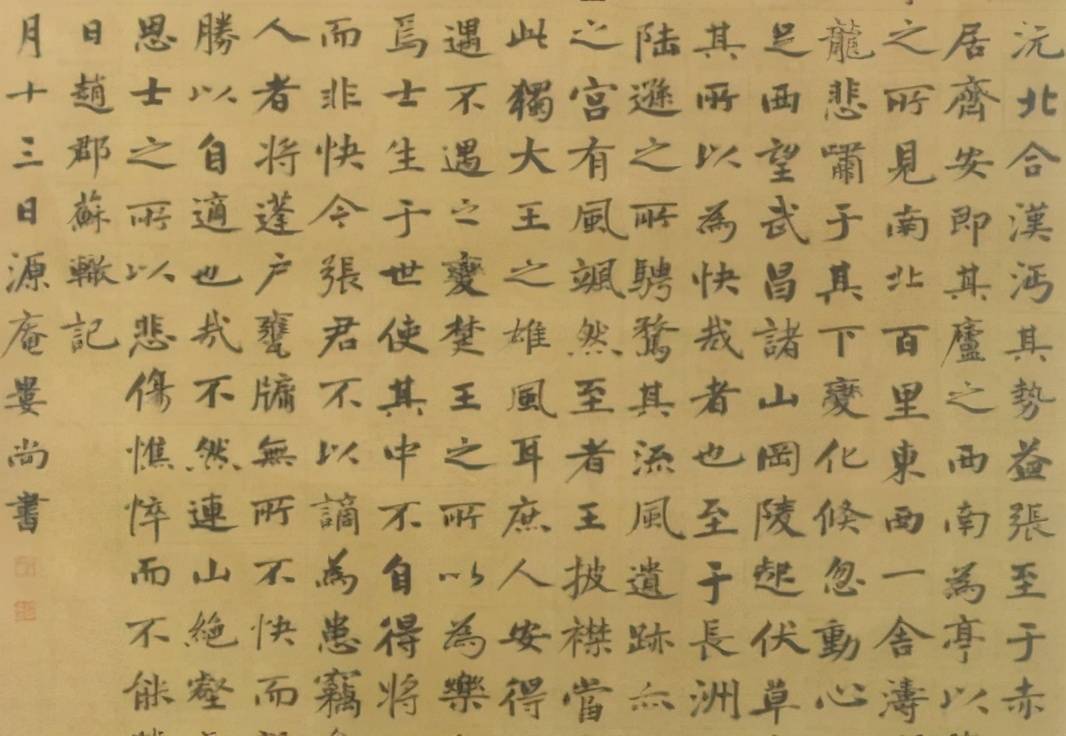 沅北合漢沔其勢益張至于赤
居齊安即其廬之西南為亭以
之所見南北百里東西一舍濤
龍悲嘯于其下變化倏忽動心
足西望武昌諸山岡陵起伏草
其所以為快哉者也至于長洲
陸遜之所騁騖其流風遺跡亦
之宮有風颯然至者王披襟當
此獨大王之雄風耳庶人安得
遇不遇之變楚王之所以為樂
焉士生于世使其中不自得將
而非快今張君不以謫為患竊
人者將蓬戶甕牖無所不快而
勝以自適也哉不然連山絕壑
思士之所以悲傷憔悴而不能
日趙郡蘇轍記
月十三日源庵婁尚書